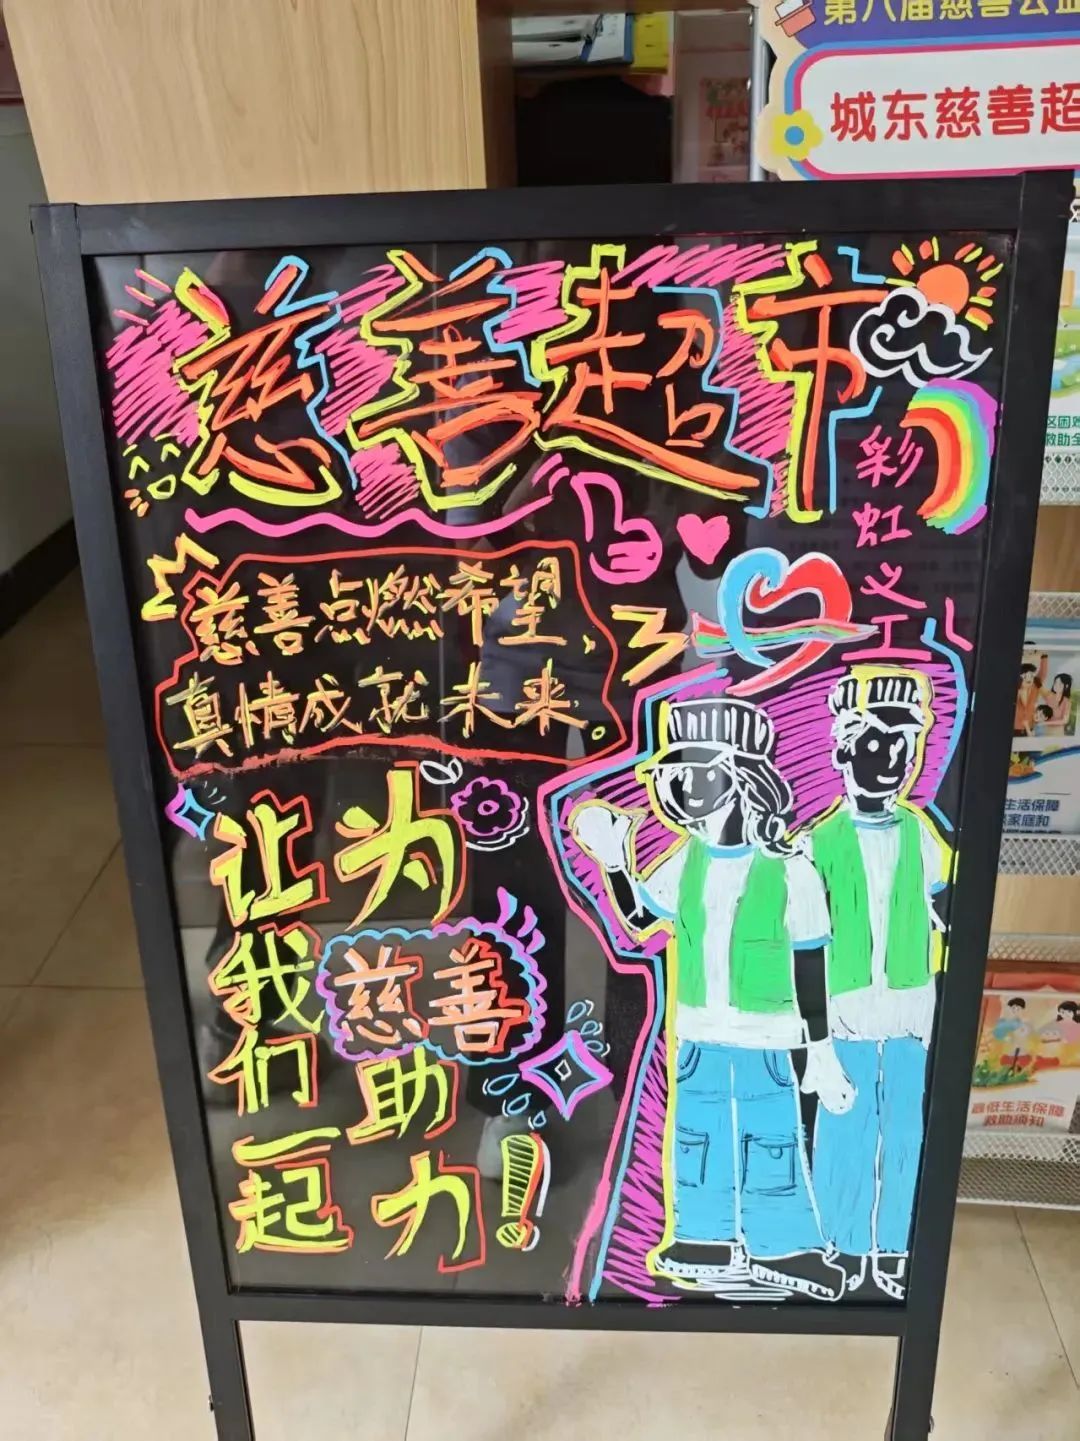 第八届慈善公益
城东慈善超
慈善超市
彩虹义工
慈善点燃希望，
真情成就未来。
让我们一起
为慈善助力！
生活保障
家庭和
最低生活保障
救助须知